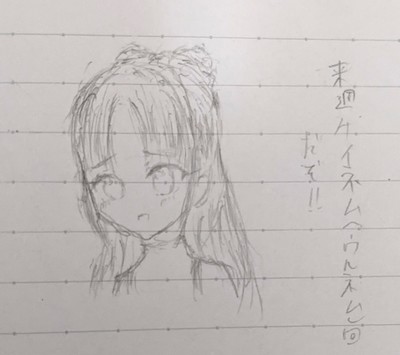 来週ゲイネムヘウルネム回
だぞ!!